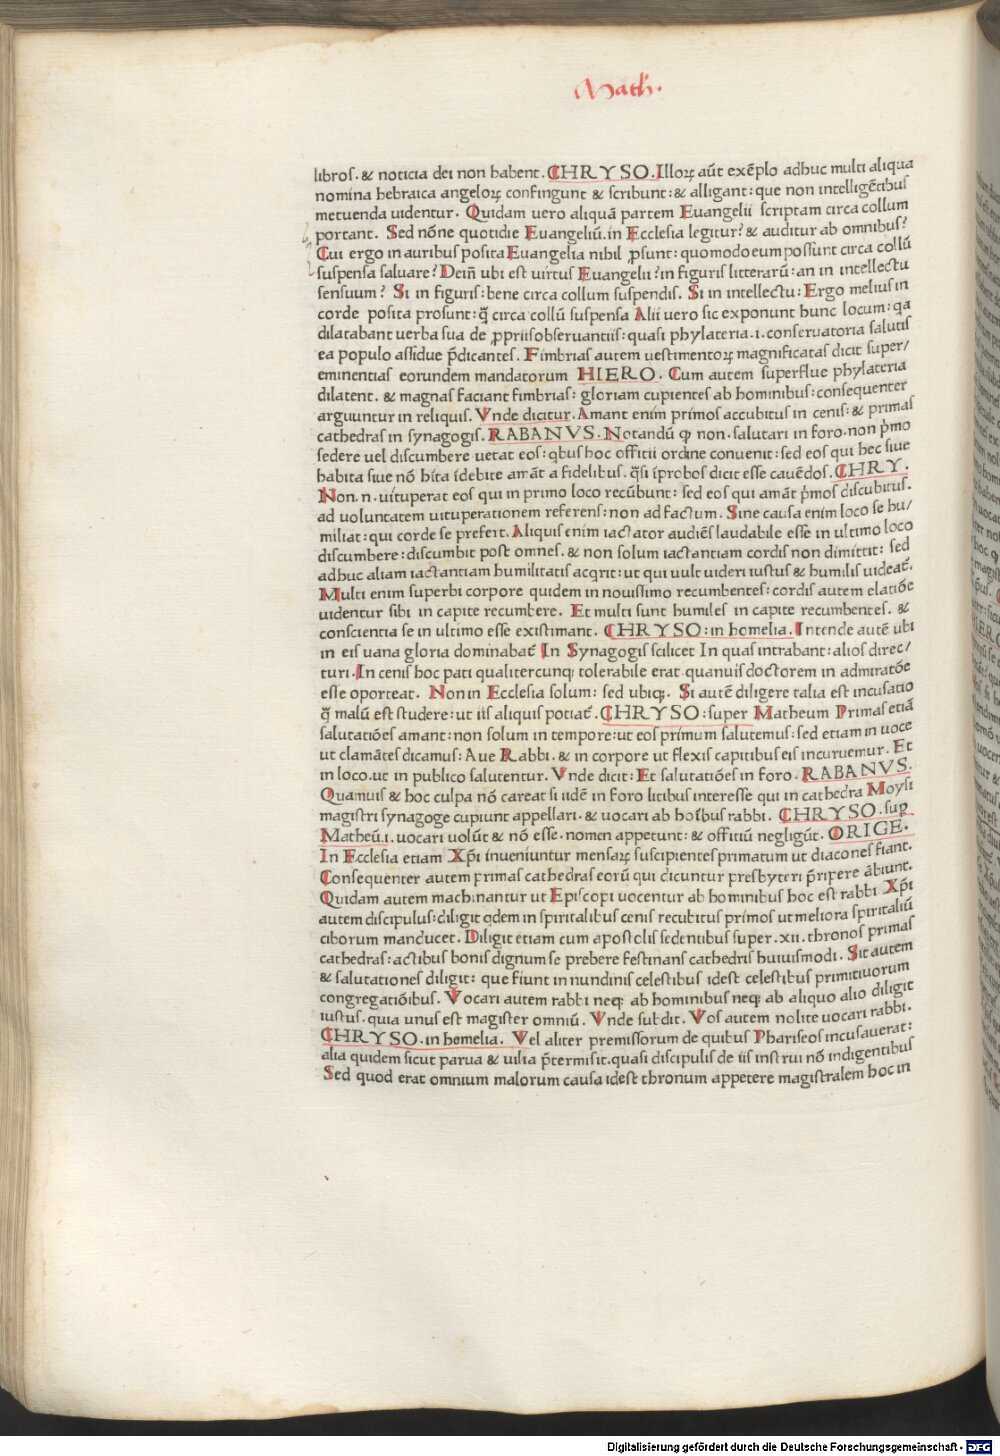 Math.
libros. & noticia dei non habent. CHRYSO. Illoꝝ aūt exēplo adhuc multi aliqua
nomina hebraica angeloꝝ confingunt & scribunt: & alligant: que non intelligētibus
metuenda uidentur. Quidam uero aliquā partem Euangelii scriptam circa collum
portant. Sed nōne quotidie Euangeliū. in Ecclesia legitur? & auditur ab omnibus?
Cui ergo in auribus posita Euangelia nihil ꝓsunt: quomodo eum possunt circa collū
suspensa saluare? Deiñ ubi est uirtus Euangelii? in figuris litterarū: an in intellectu
sensuum? Si in figuris: bene circa collum suspendis. Si in intellectu: Ergo melius in
corde posita prosunt: q̄ circa collū suspensa Alii uero sic exponunt hunc locum: qa
dilatabant uerba sua de ꝓpriis obseruantiis: quasi phylateria .i. conseruatoria salutis
ea populo assidue p̄dicantes. Fimbrias autem uestimentoꝝ magnificatas dicit super/
eminentias eorundem mandatorum HIERO. Cum autem superflue phylateria
dilatent. & magnas faciant fimbrias: gloriam cupientes ab hominibus: consequenter
arguuntur in reliquis. Vnde dicitur. Amant enim primos accubitus in cenis: & primas
cathedras in synagogis. RABANVS. Notandū ꝙ non. salutari in foro. non p̄mo
sedere uel discumbere uetat eos: qbus hoc offitii ordine conuenit: sed eos qui hec siue
habita siue nō hita īdebite amāt a fidelibus. q̄si īprobos dicit esse cauēdos. CHRY.
Non. n. uituperat eos qui in primo loco recūbunt: sed eos qui amāt p̄mos discubitus.
ad uoluntatem uituperationem referens: non ad factum. Sine causa enim loco se hu/
miliat: qui corde se prefert. Aliquis enim iactator audiēs laudabile esse in ultimo loco
discumbere: discumbit post omnes. & non solum iactantiam cordis non dimittit: sed
adhuc aliam iactantiam humilitatis acqrit: ut qui uult uideri iustus & humilis uideat̄.
Multi enim superbi corpore quidem in nouissimo recumbentes: cordis autem elatiōe
uidentur sibi in capite recumbere. Et multi sunt humiles in capite recumbentes. &
conscientia se in ultimo esse existimant. CHRYSO: in homelia. Intende autē ubi
in eis uana gloria dominabat̄ In Synagogis scilicet In quas intrabant: alios direc/
turi. In cenis hoc pati qualitercunqꝫ tolerabile erat. quanuis doctorem in admiratōe
esse oporteat. Non in Ecclesia solum: sed ubiqꝫ. Si autē diligere talia est incusatio
q̄ malū est studere: ut iis aliquis potiat̄. CHRYSO: super Matheum Primas etiā
salutatiōes amant: non solum in tempore: ut eos primum salutemus: sed etiam in uoce
ut clamātes dicamus: Aue Rabbi. & in corpore ut flexis capitibus eis incuruemur. Et
in loco. ut in publico salutentur. Vnde dicit: Et salutatiōes in foro. RABANVS.
Quamuis & hoc culpa nō careat si iidē in foro litibus interesse qui in cathedra Moysi
magistri synagoge cupiunt appellari. & uocari ab hoībus rabbi. CHRYSO. sup
Matheū .i. uocari uolūt & nō esse. nomen appetunt: & offitiū negligūt. ORIGE.
In Ecclesia etiam Xp̄i inueniuntur mensaꝝ suscipientes primatum ut diacones fiant.
Consequenter autem primas cathedras eorū qui dicuntur presbyteri p̄ripere ābiunt.
Quidam autem machinantur ut Episcopi uocentur ab hominibus hoc est rabbi Xp̄i
autem discipulus: diligit qdem in spiritalibus cenis recubitus primos ut meliora spiritaliū
ciborum manducet. Diligit etiam cum apostolis sedentibus super .xii. thronos primas
cathedras: actibus bonis dignum se prebere festinans cathedris huiuismodi. Sit autem
& salutationes diligit: que fiunt in nundinis celestibus idest celestibus primitiuorum
congregatiōibus. Vocari autem rabbi neqꝫ ab hominibus neqꝫ ab aliquo alio diligit
iustus. quia unus est magister omniū. Vnde subdit. Vos autem nolite uocari rabbi.
CHRYSO. in homelia. Vel aliter premissorum de quibus Phariseos incusauerat:
alia quidem sicut parua & uilia p̄termisit. quasi discipulis de iis instrui nō indigentibus
Sed quod erat omnium malorum causa idest thronum appetere magistralem hoc in
Digitalisierung gefördert durch die Deutsche Forschungsgemeinschaft - DFG